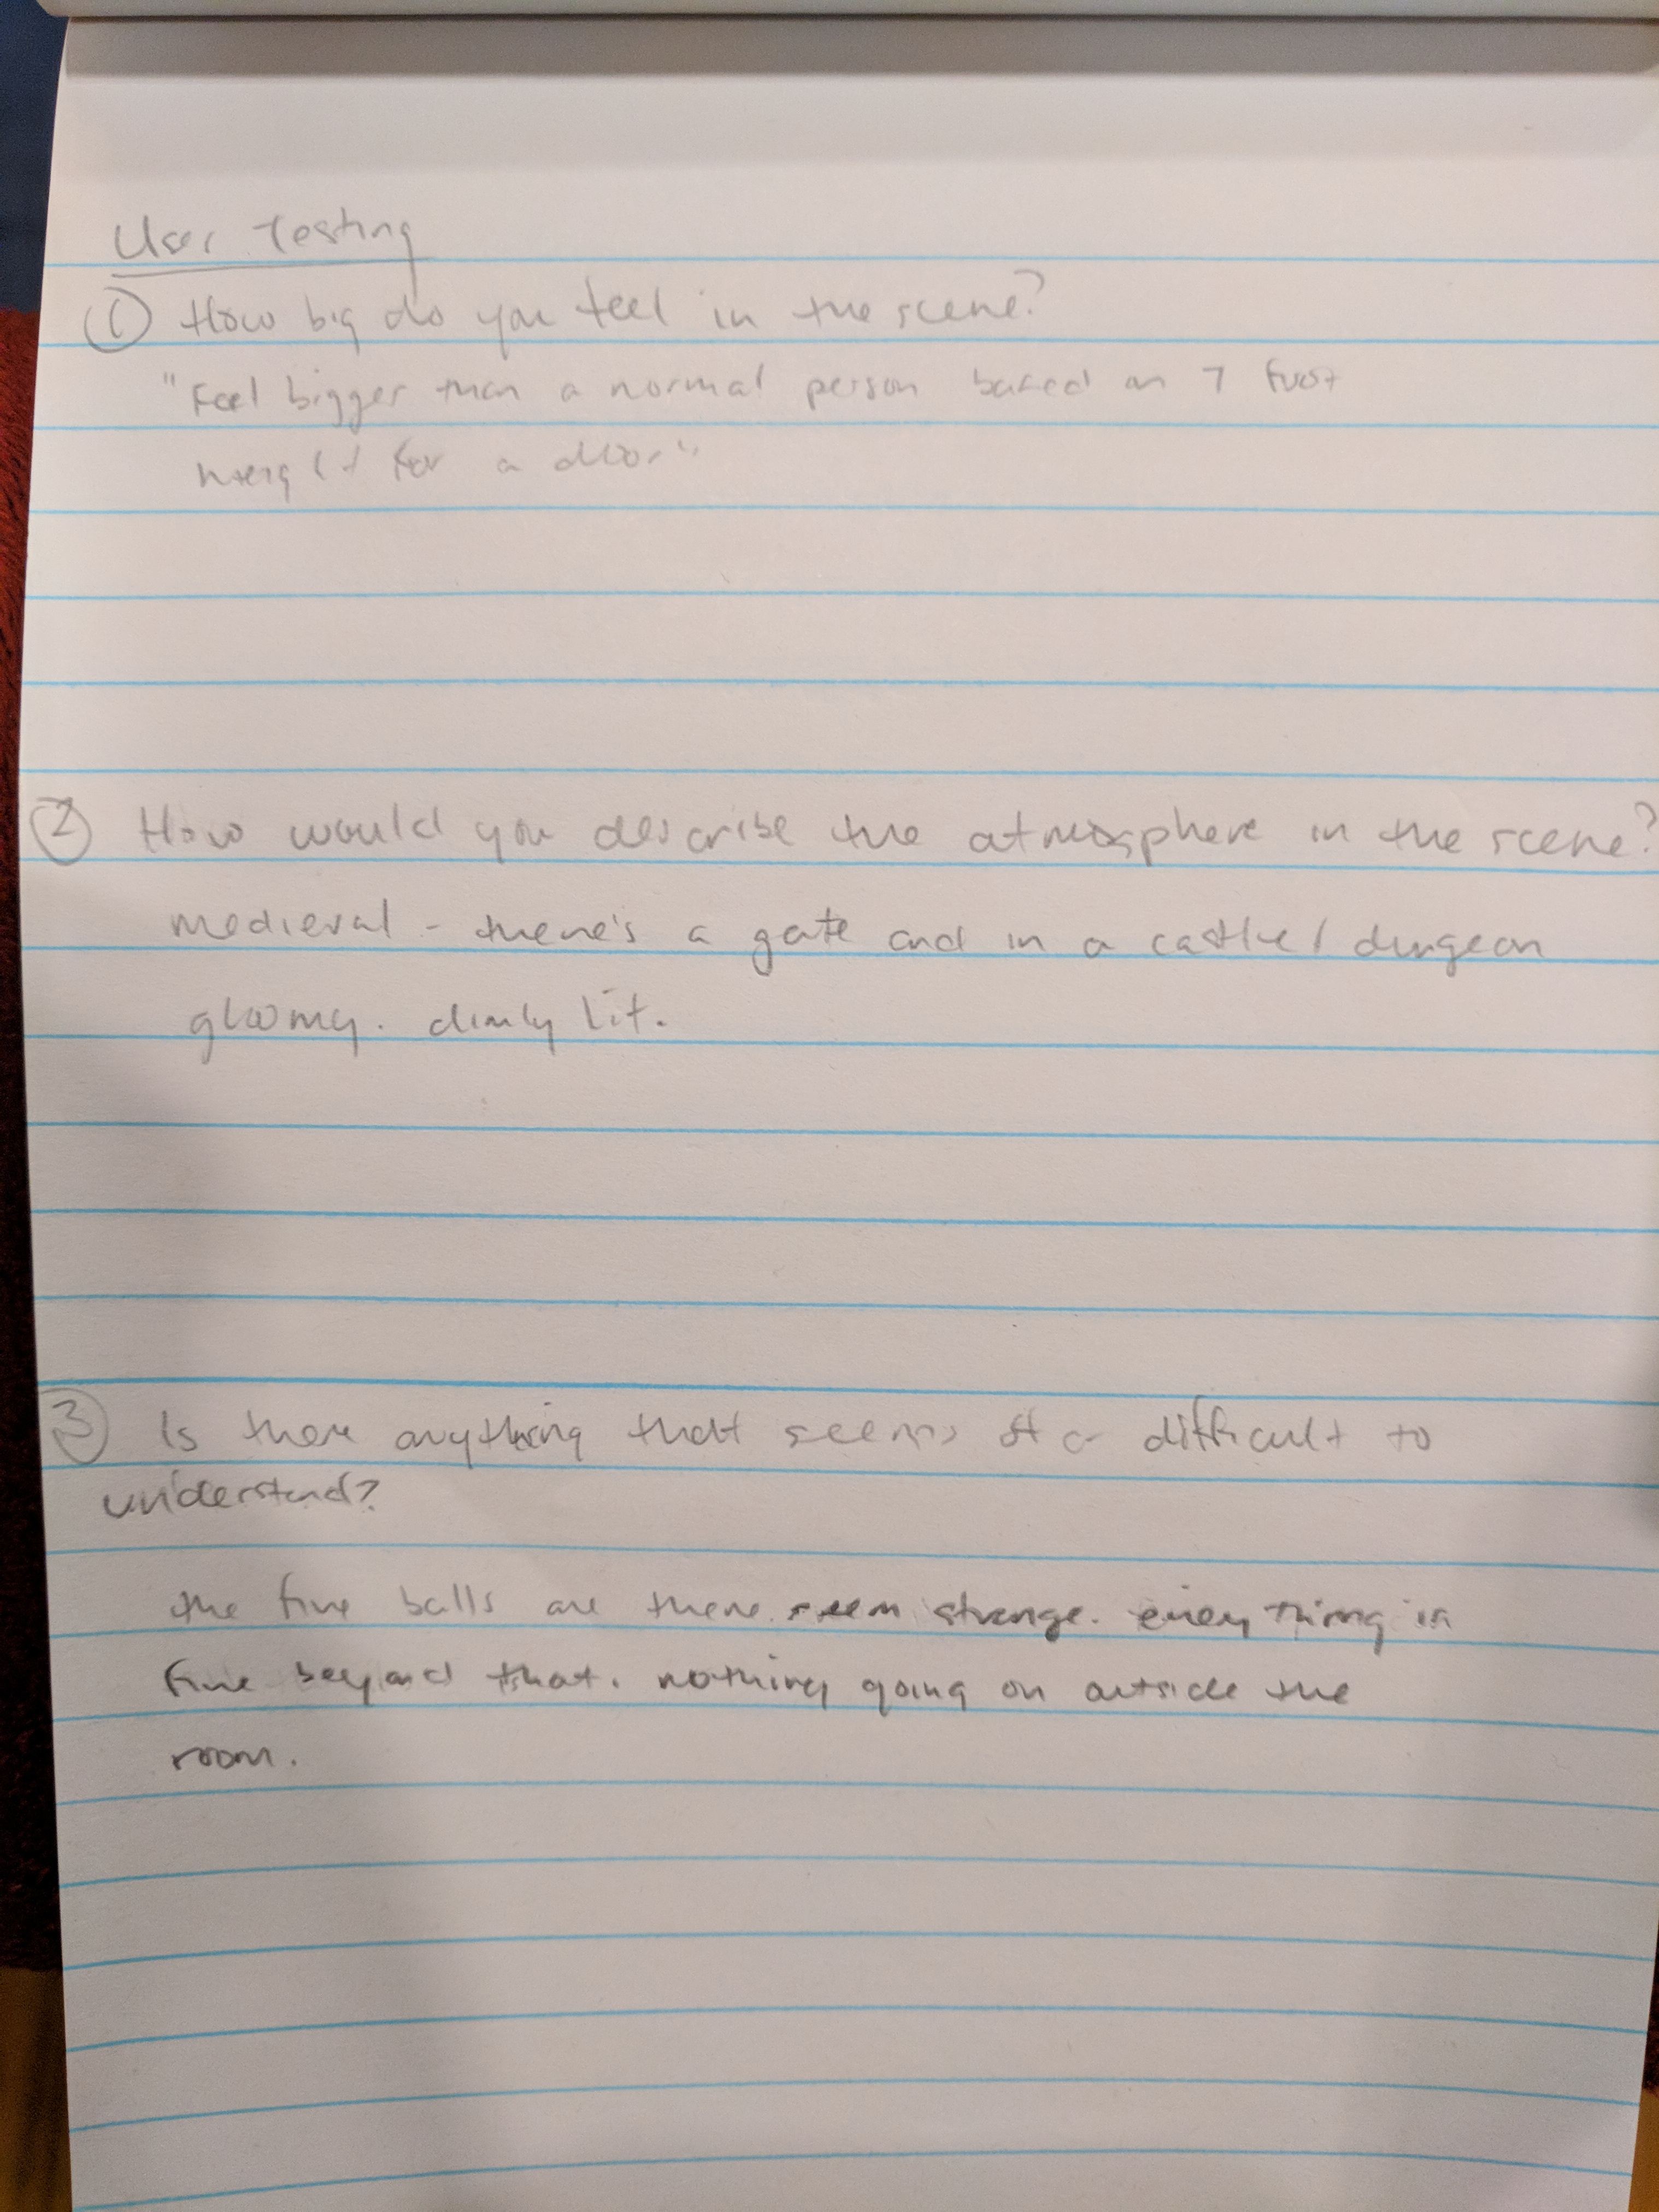 User Testing
① How big do you feel in the scene?
"Feel bigger than a normal person based on 7 foot
height for a door"
② How would you describe the atmosphere in the scene?
medieval - there's a gate and in a castle / dungeon
gloomy. dimly lit.
③ Is there anything that seems difficult to
understand?
the five balls are there seem strange. everything is
fine beyond that. nothing going on outside the
room.